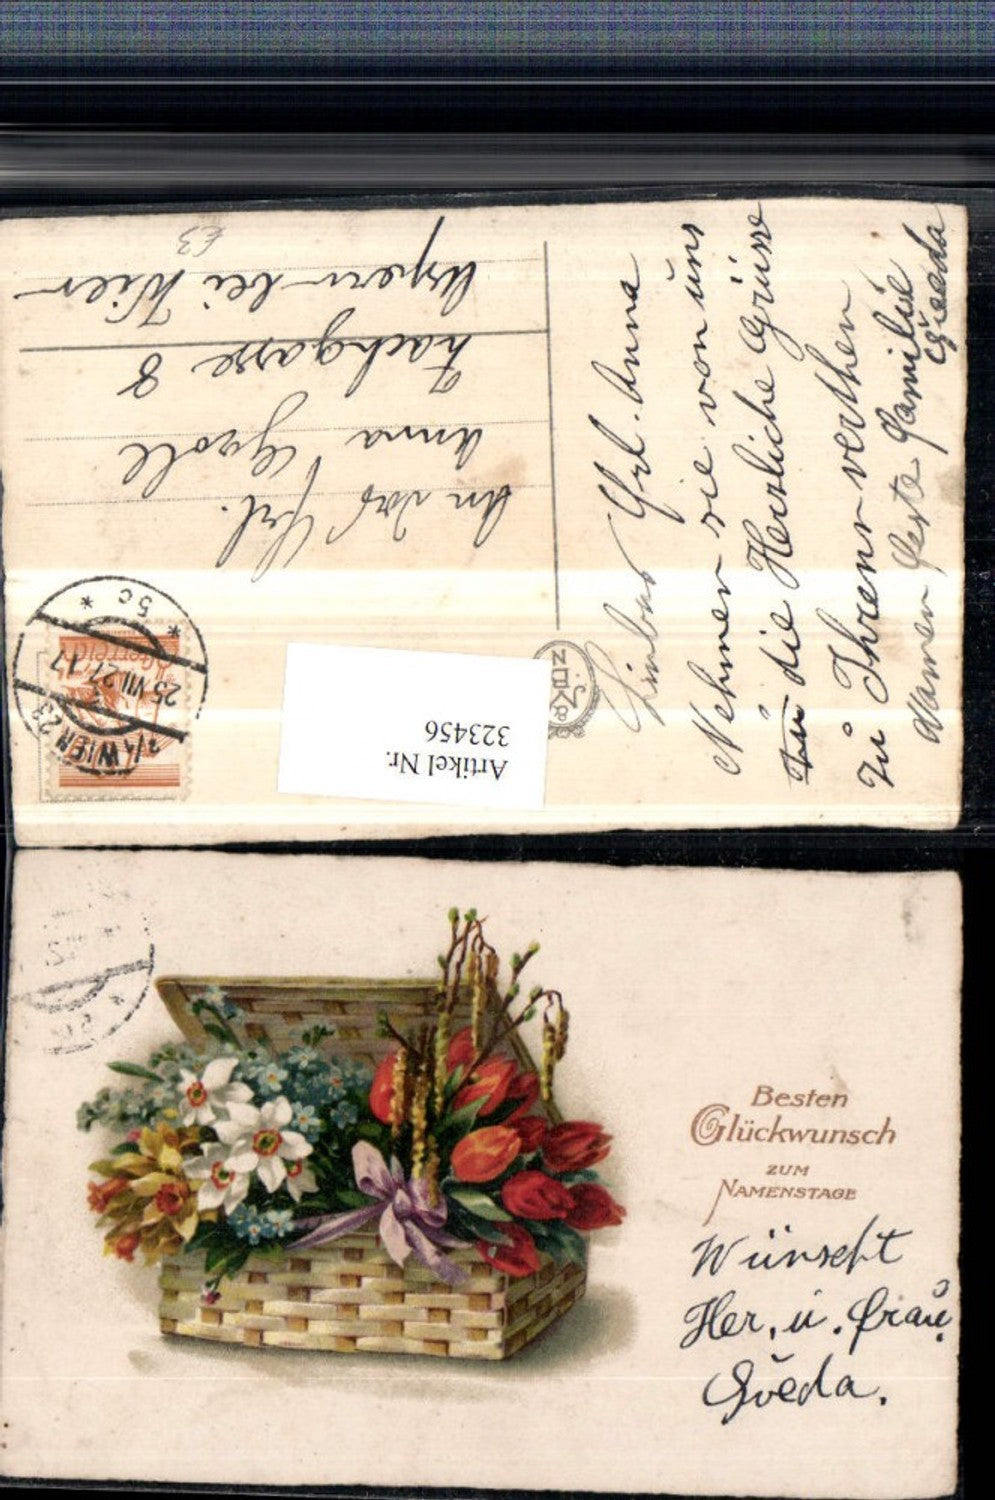 Liebes Frl. Anna
Nehmen sie von uns
die Herzliche Grüsse
Zu Ihren werthen
Namen feste Familie
Gveda
An das Frl.
Anna
Zachgasse 8
Aspern bei Wien
E3
2/1 WIEN 23
25 VII 27 17
* 5c *
Österreich
Artikel Nr.
323456
Besten
Glückwunsch
ZUM
NAMENSTAGE
Wünscht
Her. u. Frau.
Gveda.